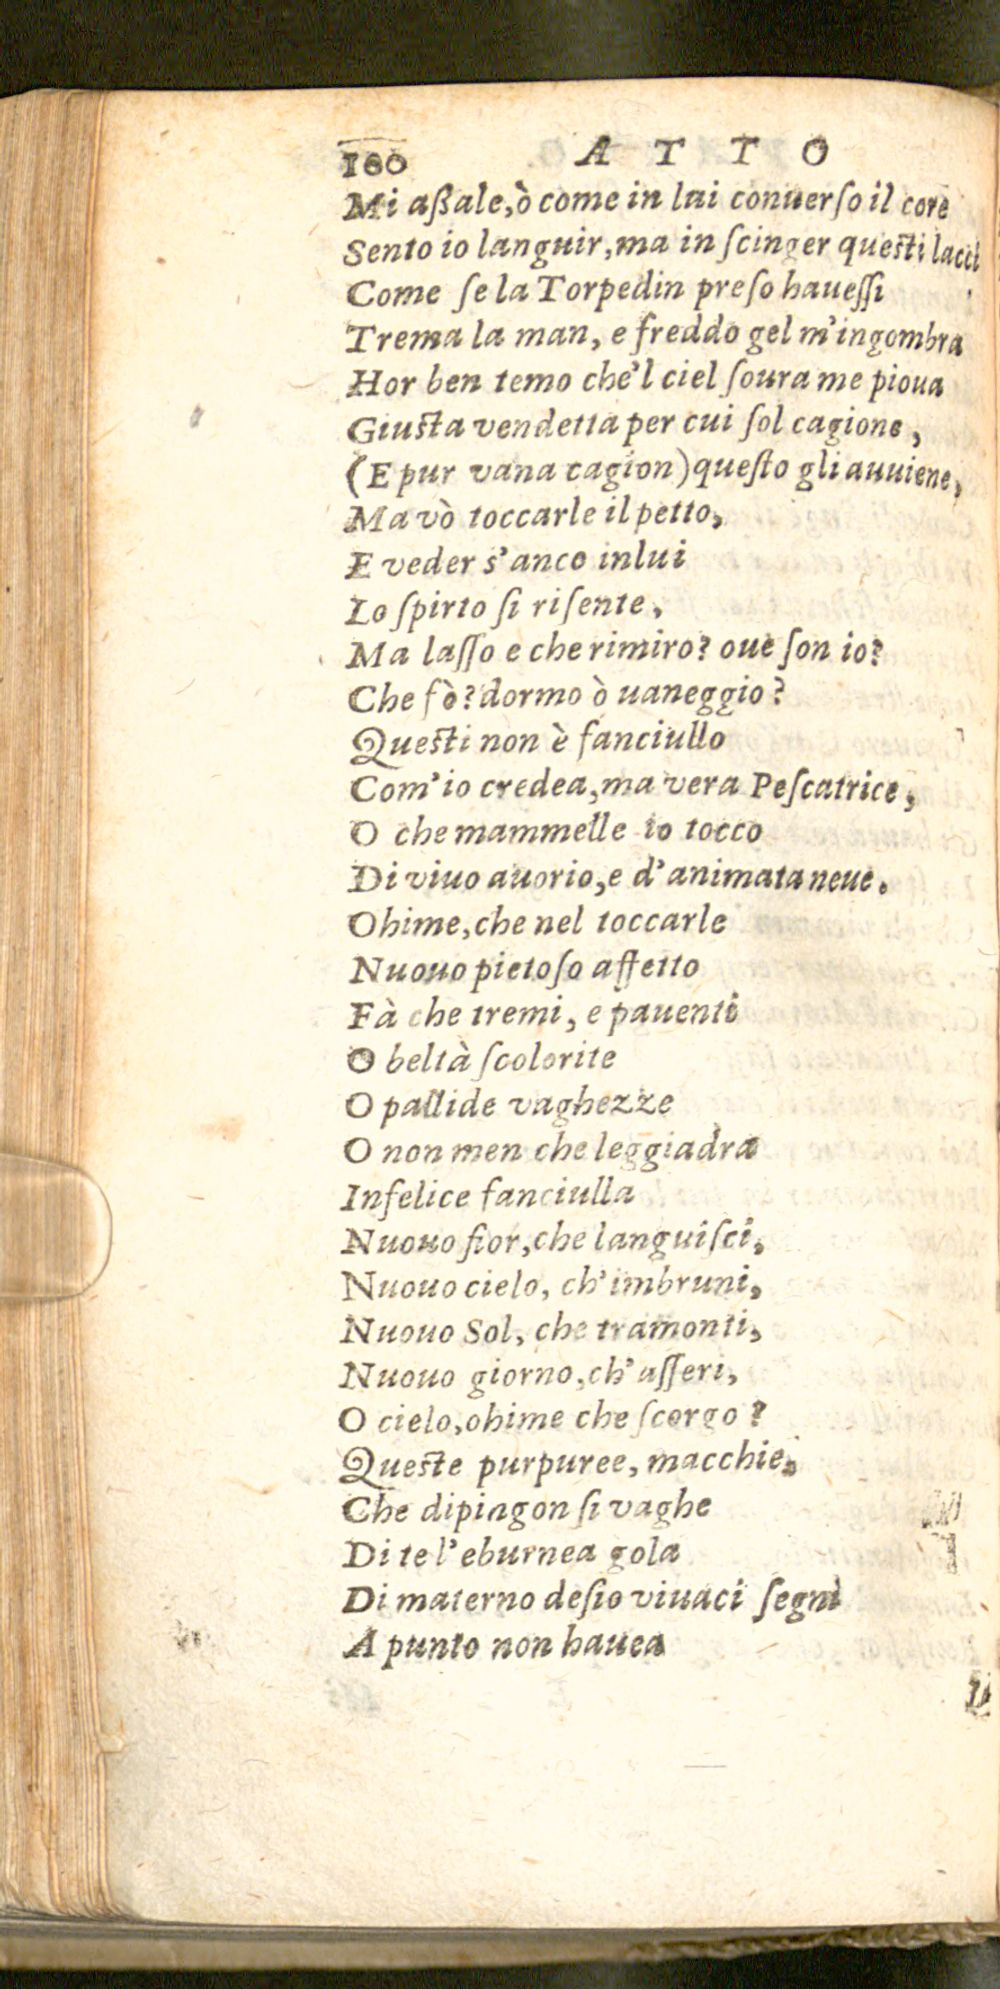 160 ATTO
Mi aßale, ò come in lai conuerſo il core
Sento io languir, ma in ſcinger queſti lacci
Come ſe la Torpedin preſo haueſſi
Trema la man, e freddo gel m'ingombra
Hor ben temo che'l ciel ſoura me pioua
Giuſta vendetta per cui ſol cagione,
(E pur vana cagion) queſto gli auuiene,
Ma vò toccarle il petto,
E veder s'anco in lui
Lo ſpirto ſi riſente,
Ma laſſo e che rimiro? oue ſon io?
Che fò? dormo ò uaneggio?
Queſti non è fanciullo
Com'io credea, ma vera Peſcatrice,
O che mammelle io tocco
Di viuo auorio, e d'animata neue.
Ohime, che nel toccarle
Nuouo pietoſo affetto
Fà che tremi, e pauenti
O beltà ſcolorite
O pallide vaghezze
O non men che leggiadra
Infelice fanciulla
Nuouo fior, che languiſci,
Nuouo cielo, ch'imbruni,
Nuouo Sol, che tramonti,
Nuouo giorno, ch'aſſeri,
O cielo, ohime che ſcorgo?
Queſte purpuree, macchie,
Che dipingon ſi vaghe
Di te l'eburnea gola
Di materno deſio viuaci ſegni
A punto non hauea